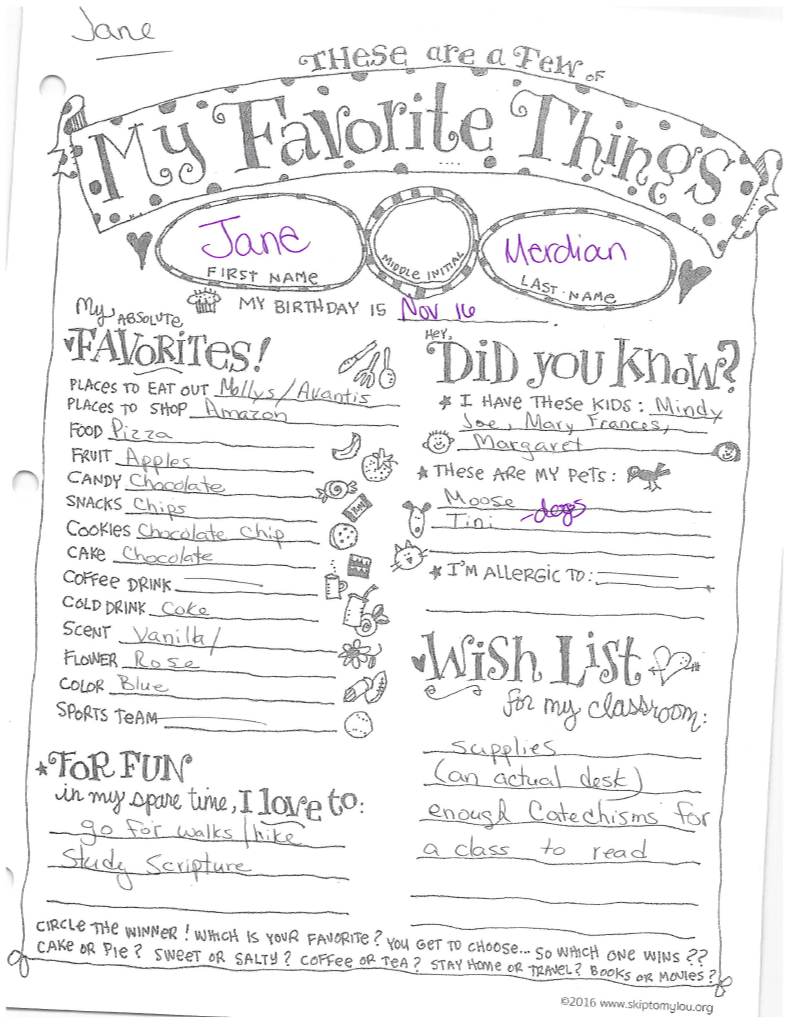 Jane
THESE are a FEW OF
MY FAVORITE THINGS
Jane
FIRST NAME
MIDDLE INITIAL
Merdian
LAST NAME
MY BIRTHDAY IS Nov 16
My ABSOLUTE
FAVORITES!
PLACES TO EAT OUT Mollys/Avantis
PLACES TO SHOP Amazon
FOOD Pizza
FRUIT Apples
CANDY Chocolate
SNACKS Chips
COOKIES Chocolate Chip
CAKE Chocolate
COFFEE DRINK
COLD DRINK Coke
SCENT Vanilla/
FLOWER Rose
COLOR Blue
SPORTS TEAM
FOR FUN
in my spare time, I love to:
go for walks/hike
Study Scripture
Hey,
DID YOU KNOW?
I HAVE THESE KIDS: Mindy
Joe, Mary Frances,
Margaret
THESE ARE MY PETS:
Moose
Tini - dogs
I'M ALLERGIC TO:
WISH LIST
for my classroom:
supplies
(an actual desk)
enough Catechisms for
a class to read
CIRCLE THE WINNER! WHICH IS YOUR FAVORITE? YOU GET TO CHOOSE... SO WHICH ONE WINS??
CAKE OR PIE? SWEET OR SALTY? COFFEE OR TEA? STAY HOME OR TRAVEL? BOOKS OR MOVIES?
©2016 www.skiptomylou.org